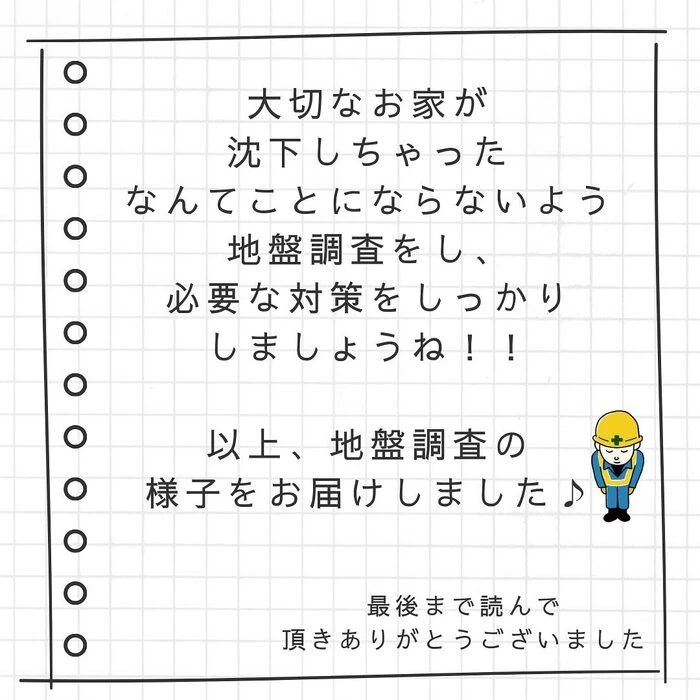 大切なお家が
沈下しちゃった
なんてことにならないよう
地盤調査をし、
必要な対策をしっかり
しましょうね！！
以上、地盤調査の
様子をお届けしました♪
最後まで読んで
頂きありがとうございました